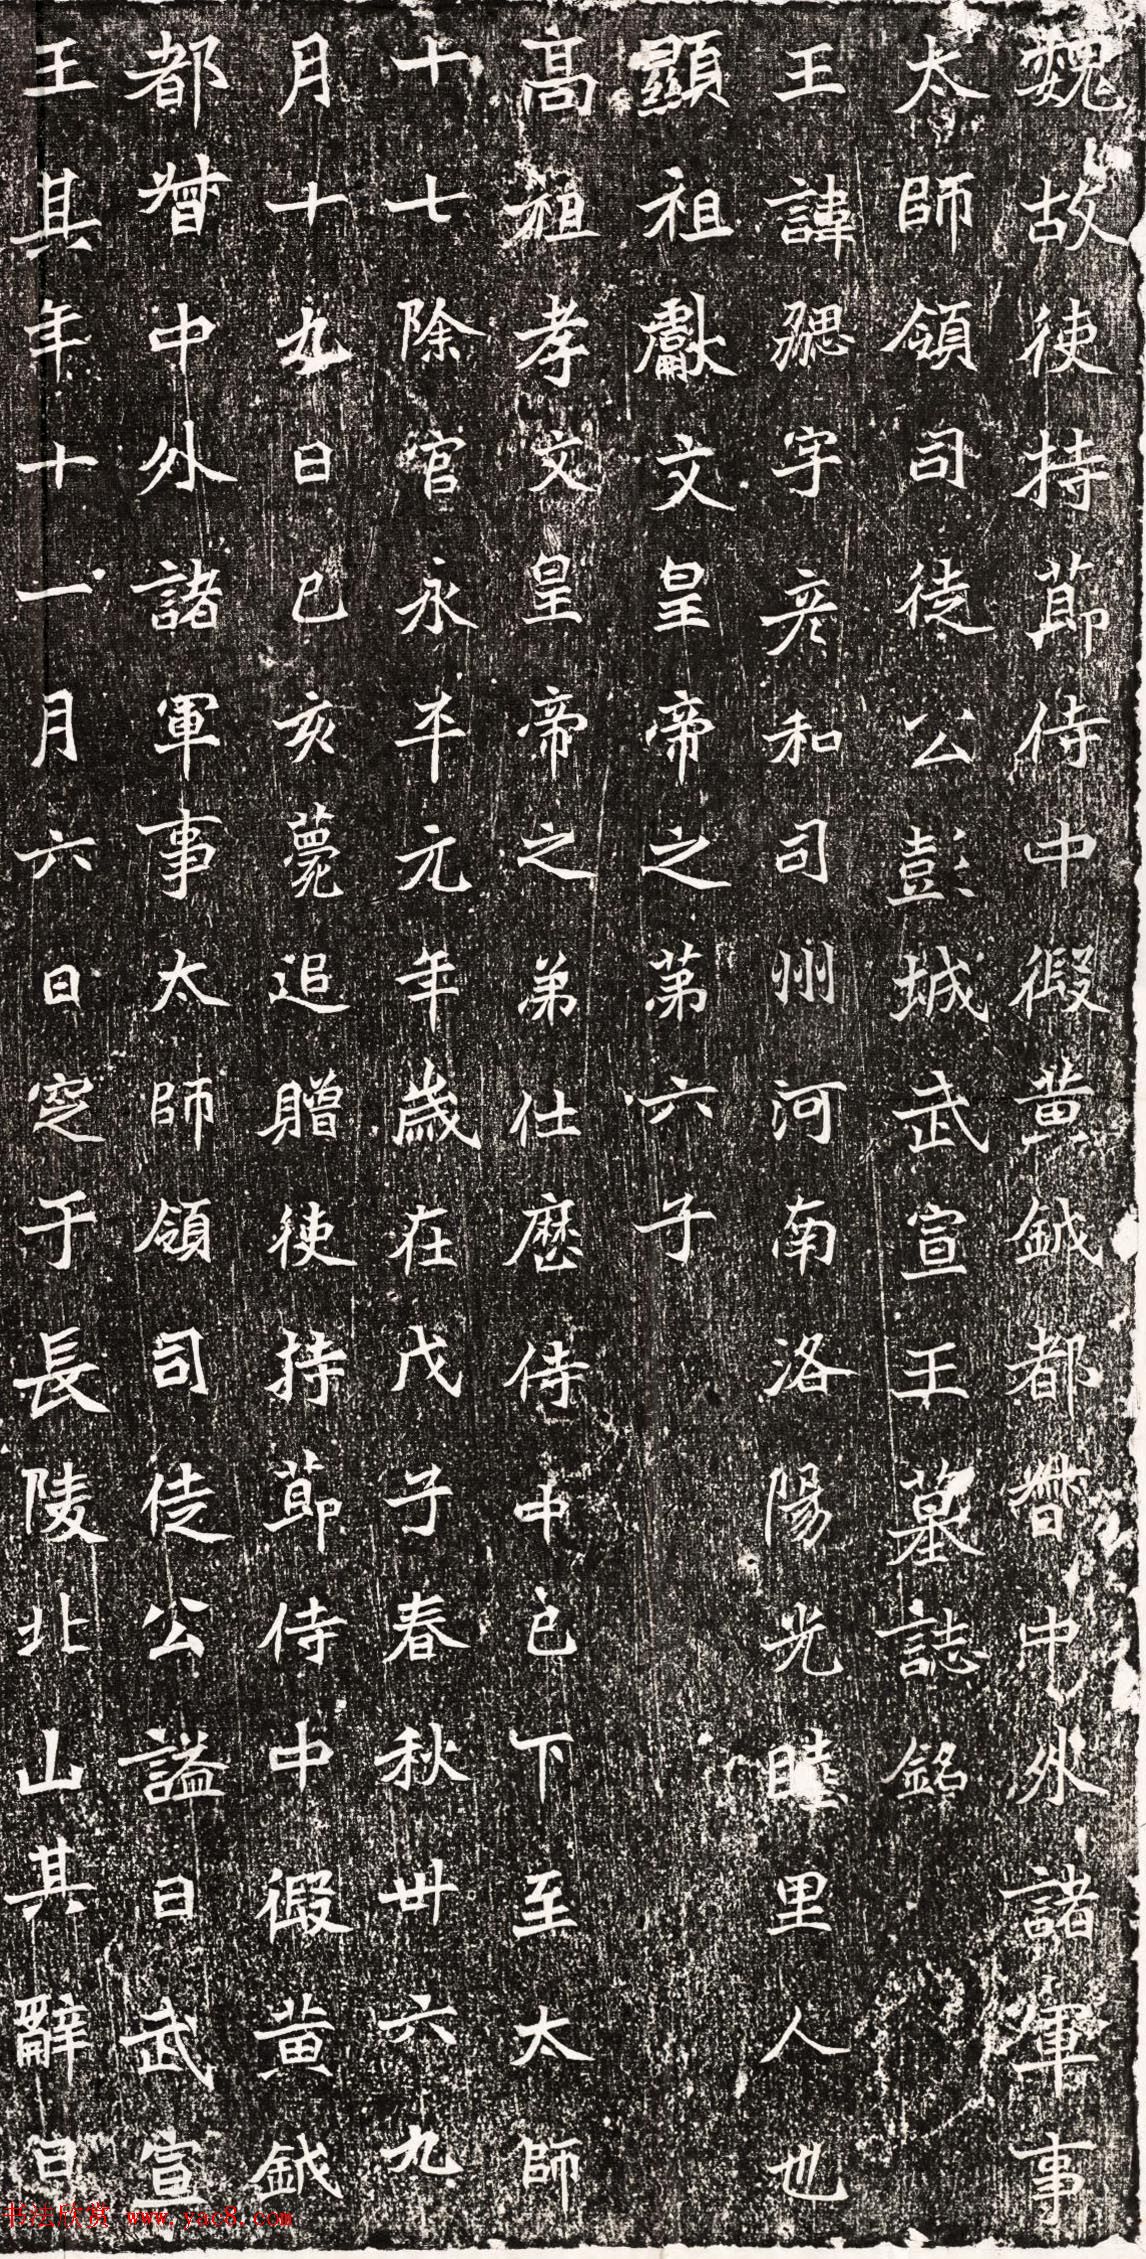 魏故使持節侍中假黃鉞都督中外諸軍事
太師領司徒公彭城武宣王墓誌銘
王諱勰字彥和司州河南洛陽光睦里人也
顯祖獻文皇帝之第六子
高祖孝文皇帝之弟仕歷侍中已下至太師
十七除官永平元年歲在戊子春秋卅六九
月十九日己亥薨追贈使持節侍中假黃鉞
都督中外諸軍事太師領司徒公謚曰武宣
王其年十一月六日窆于長陵北山其辭曰
书法欣赏 www.yac8.com